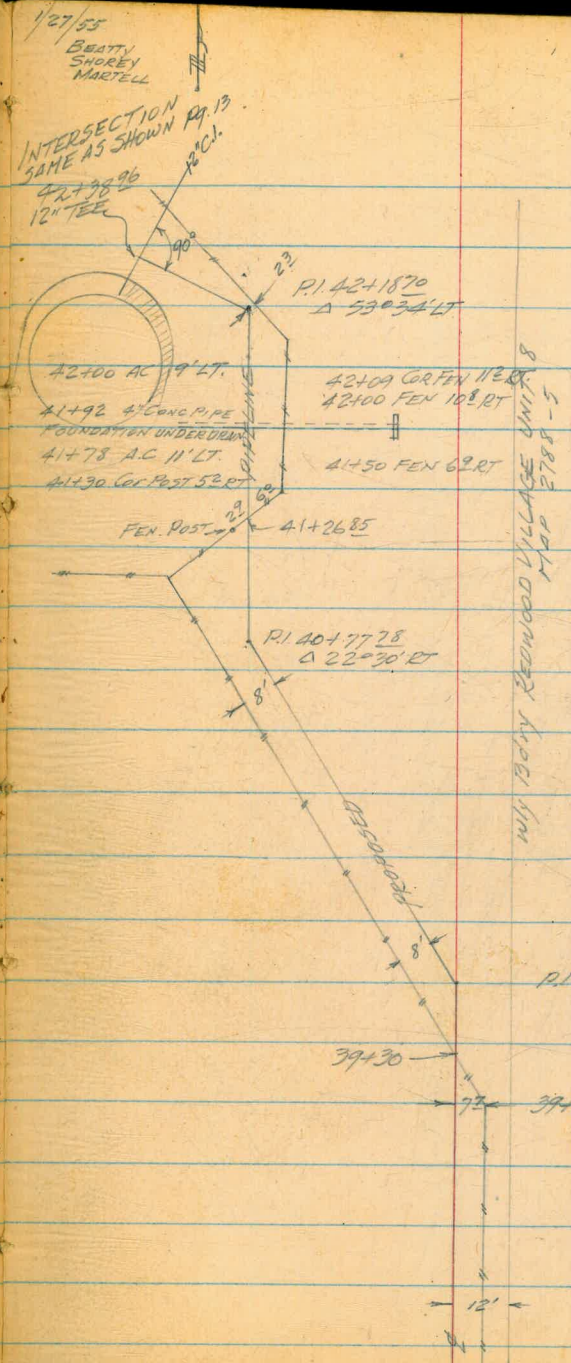 1/27/55
BEATTY
SHOREY
MARTELL
INTERSECTION
SAME AS SHOWN Pg. 13
42+38 96
12" TEE
12" C.I.
90°
2 31
P.I. 42+18 70
Δ 53°34' LT
42+00 AC 9' LT.
42+09 COR FEN 11 2 RT
42+00 FEN 10 8 RT
41+92 4" CONC PIPE
FOUNDATION UNDERDRAIN
41+78 A.C 11' LT.
41+50 FEN 6 9 RT
41+30 COR POST 5 2 RT
PIPELINE
FEN. POST
2 9
6 0
41+26 85
P.I. 40+77 78
Δ 22°30' RT
8'
PROPOSED
8'
P.I
39+30
7 7
39+
12'
Wly Bdry REDWOOD VILLAGE UNIT 8
MAP 2788-5